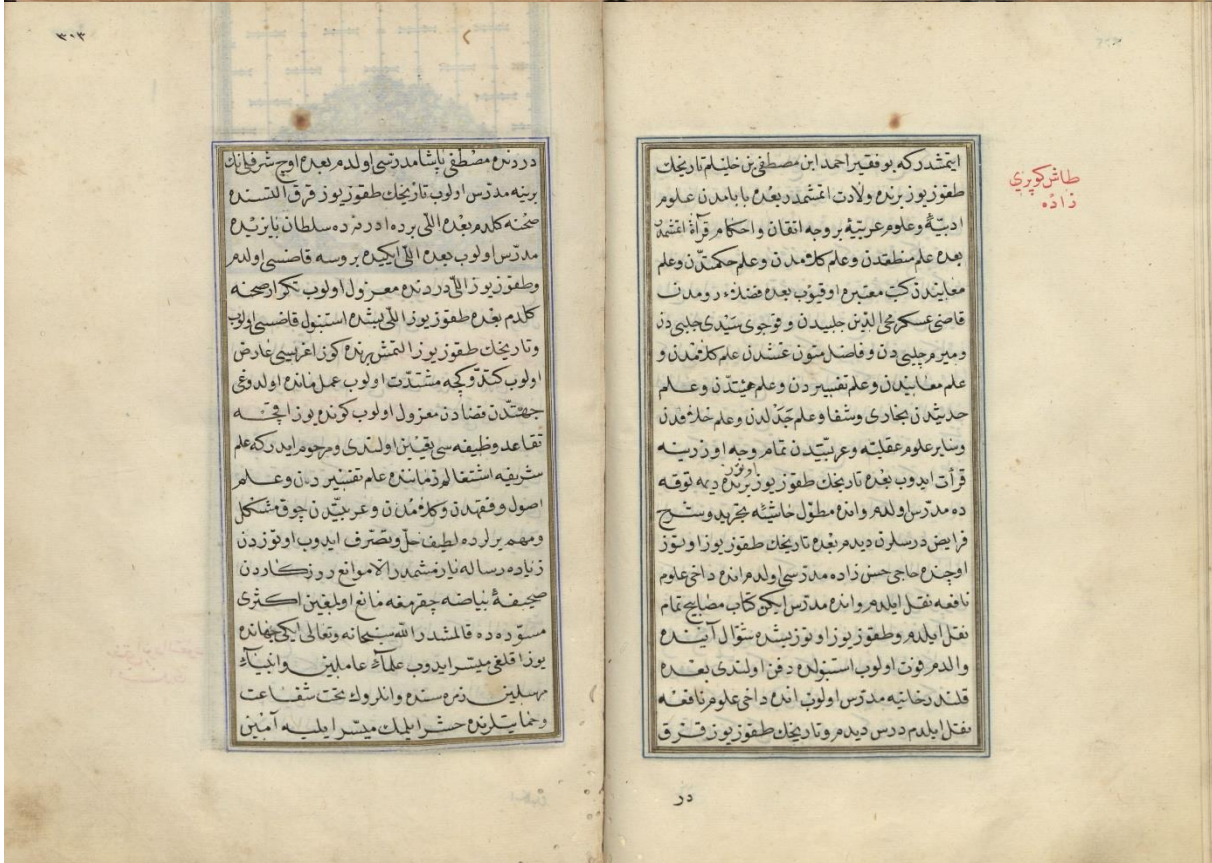 طاش كوپري
زاده
ايتمشدر كه بو فقير احمد ابن مصطفى بن خليلم تاريخك
طقوز يوز برنده ولادت اتمشمدر بعده بابامدن علوم
ادبيّه وعلوم عربيّه بر وجه اتقان واحكام قرأة اتمشمدر
بعده علم منطقدن وعلم كلامدن وعلم حكمتدن وعلم
معانيدن كتب معتبره اوقيوب بعده فضلاء رومدن
قاضى عسكر محي الدين جلبيدن وقوجوى سيّدى جلبى دن
وميرم چلبى دن وفاضل متون غشدن علم كلامدن و
علم معانيدن وعلم تفسيردن وعلم هيئتدن وعلم
حديثدن بخارى وشفا وعلم جدلدن وعلم خلافدن
وساير علوم عقليّه وعربيّتدن تمام وجه اوزرينه
قرأت ايدوب بعده تاريخك طقوز يوز اوتوز برنده ديمه توقه
ده مدرّس اولدم وانده مطوّل حاشيه تجريد وشرح
فرايض درسلرن ديدم بعده تاريخك طقوز يوز اوتوز
اوچنده حاجى حسن زاده مدرسى اولدم انده داخى علوم
نافعه نقل ايلدم وانده مدرّس ايكن كتاب مصابيح تمام
نقل ايلدم وطقوز يوز اوتوز بشده شوّال آينده
والدم فوت اولوب استنبولده دفن اولندى بعده
قلندرخانيه مدرّس اولوب انده داخى علوم نافعه
نقل ايلدم درس ديدم وتاريخك طقوز يوز قرق
در
٣٠٣
دردنده مصطفى پاشا مدرسى اولدم بعده اوچ شرفلينك
برينه مدرّس اولوب تاريخك طقوز يوز قرق التسنده
صحنه كلدم بعده اللى برده ادرنه ده سلطان بايزيده
مدرّس اولوب بعده اللى ايكيده بروسه قاضسى اولدم
وطقوز يوز اللى دردنده معزول اولوب تكرار صحنه
كلدم بعده طقوز يوز اللى بشده استنبول قاضسى اولوب
وتاريخك طقوز يوز التمش برنده كوز اغريسى عارض
اولوب كتدوكجه مشتدّت اولوب عمل مانده اولدوغى
جهتدن قضادن معزول اولوب كونده يوز اقچه
تقاعد وظيفه سى تعيين اولندى ومرحوم ايدر كه علم
شريفه اشتغالم زماننده علم تفسيردن وعلم
اصول وفقهدن وكلامدن وعربيّتدن چوق مشكل
ومهم يرلرده لطيف حلّ وتصرّف ايدوب اوتوزدن
زياده رساله يازمشمدر الا موانع روزكاردن
صحيفهٔ بياضه چقرمغه مانع اولغين اكثرى
مسوّده ده قالمشدر الله سبحانه وتعالى ايكى جهانده
يوز اقلغى ميسّر ايدوب علماء عاملين وانبياء
مرسلين زمره سنده وانلروك تحت شفاعت
وحمايتلرنده حشر ايليك ميسّر ايليه آمين